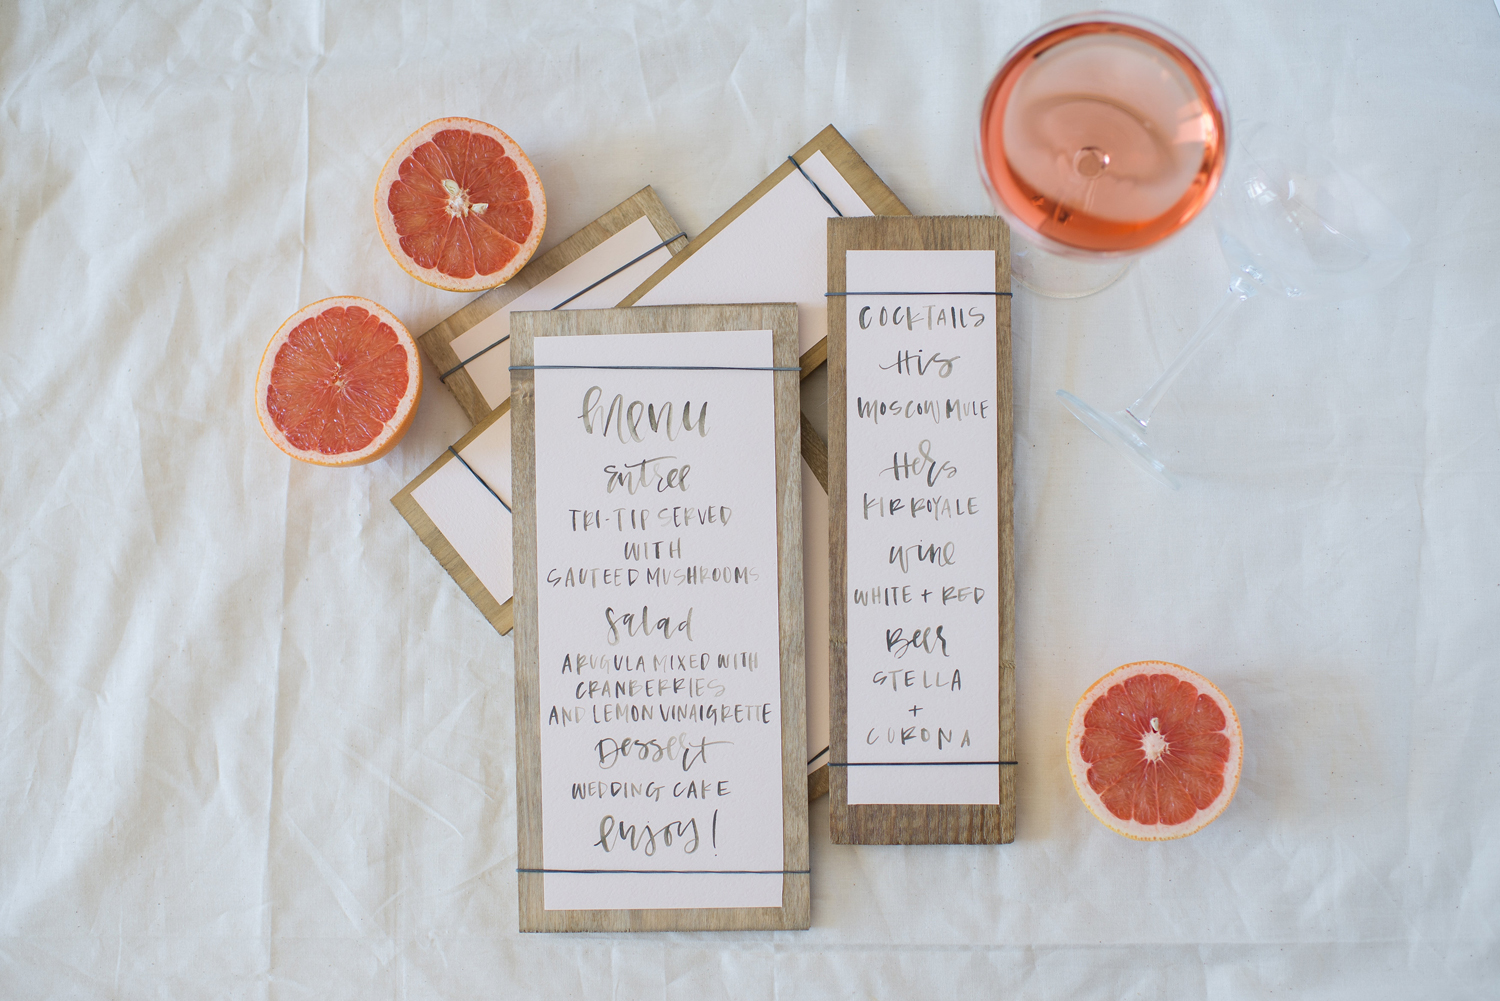 menu
entree
TRI-TIP SERVED
WITH
SAUTEED MUSHROOMS
salad
ARUGULA MIXED WITH
CRANBERRIES
AND LEMON VINAIGRETTE
Dessert
WEDDING CAKE
enjoy!
COCKTAILS
His
MOSCOW MULE
Hers
KIR ROYALE
wine
WHITE + RED
Beer
STELLA
+
CORONA